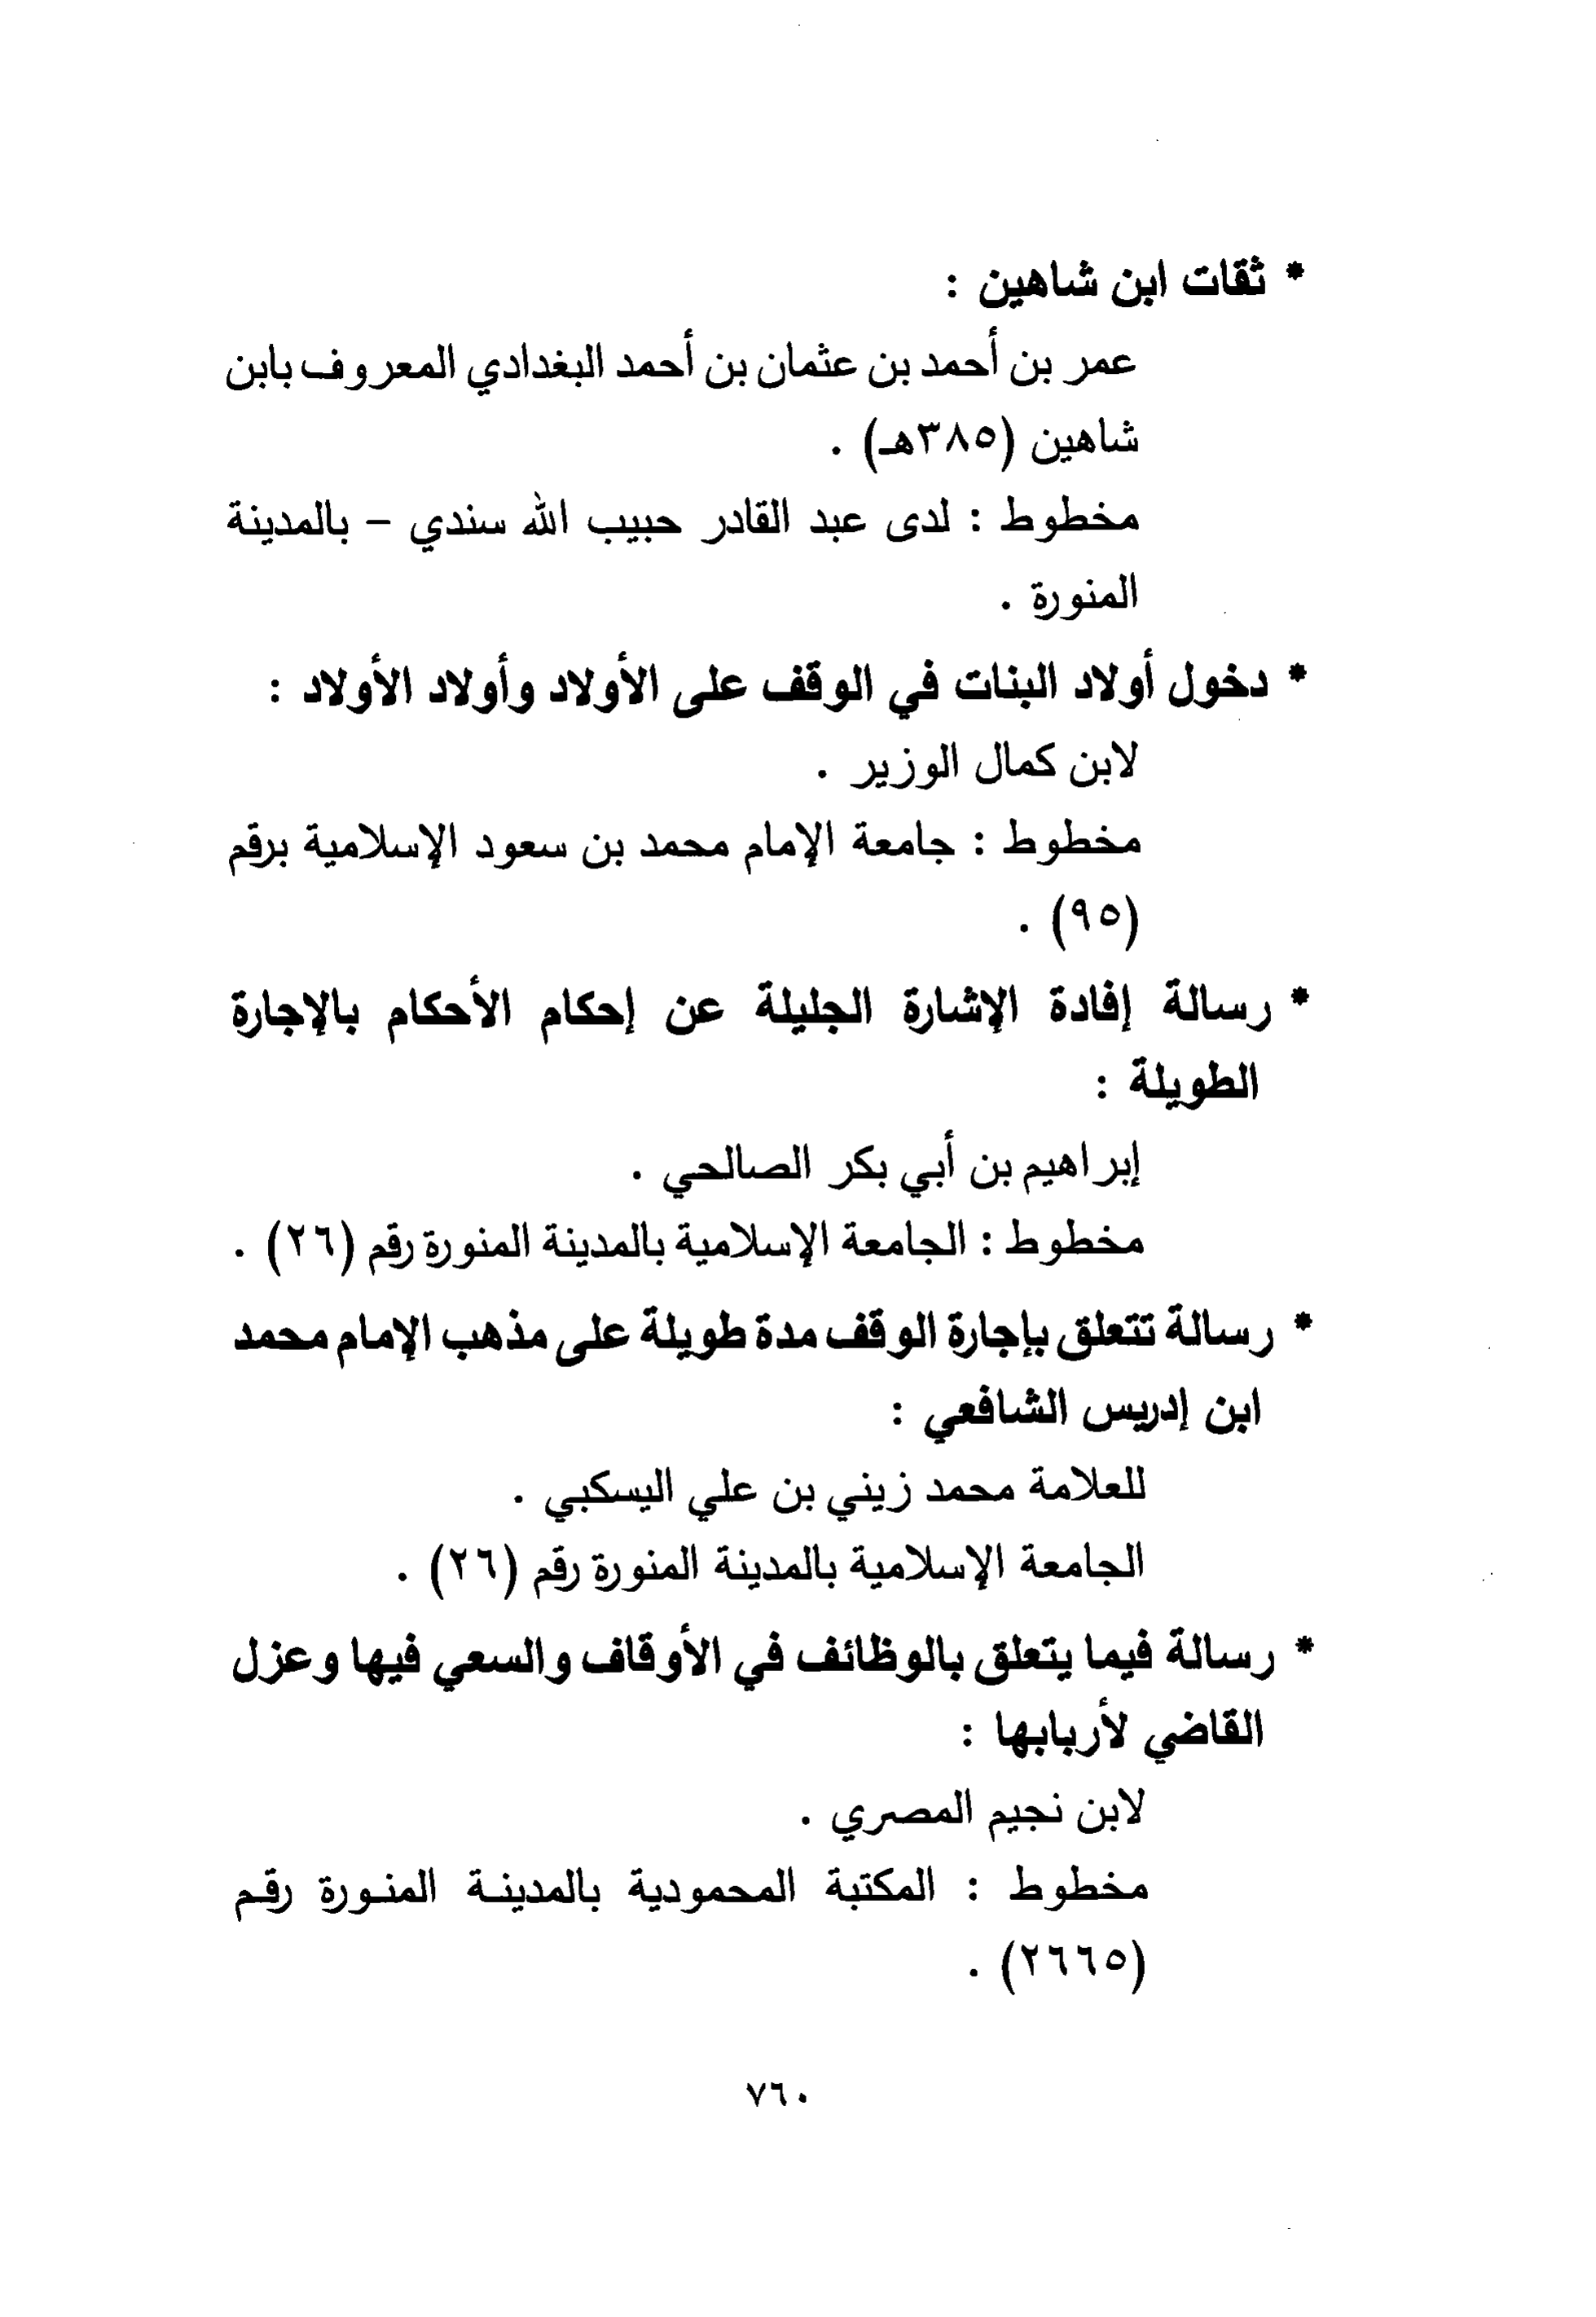 * ثقات ابن شاهين :
عمر بن أحمد بن عثمان بن أحمد البغدادي المعروف بابن
شاهين (٣٨٥هـ) .
مخطوط : لدى عبد القادر حبيب الله سندي - بالمدينة
المنورة .
* دخول أولاد البنات في الوقف على الأولاد وأولاد الأولاد :
لابن كمال الوزير .
مخطوط : جامعة الإمام محمد بن سعود الإسلامية برقم
(٩٥) .
* رسالة إفادة الإشارة الجليلة عن إحكام الأحكام بالإجارة
الطويلة :
إبراهيم بن أبي بكر الصالحي .
مخطوط : الجامعة الإسلامية بالمدينة المنورة رقم (٢٦) .
* رسالة تتعلق بإجارة الوقف مدة طويلة على مذهب الإمام محمد
ابن إدريس الشافعي :
للعلامة محمد زيني بن علي اليسكبي .
الجامعة الإسلامية بالمدينة المنورة رقم (٢٦) .
* رسالة فيما يتعلق بالوظائف في الأوقاف والسعي فيها وعزل
القاضي لأربابها :
لابن نجيم المصري .
مخطوط : المكتبة المحمودية بالمدينـة المنـورة رقـم
(٢٦٦٥) .
٧٦٠